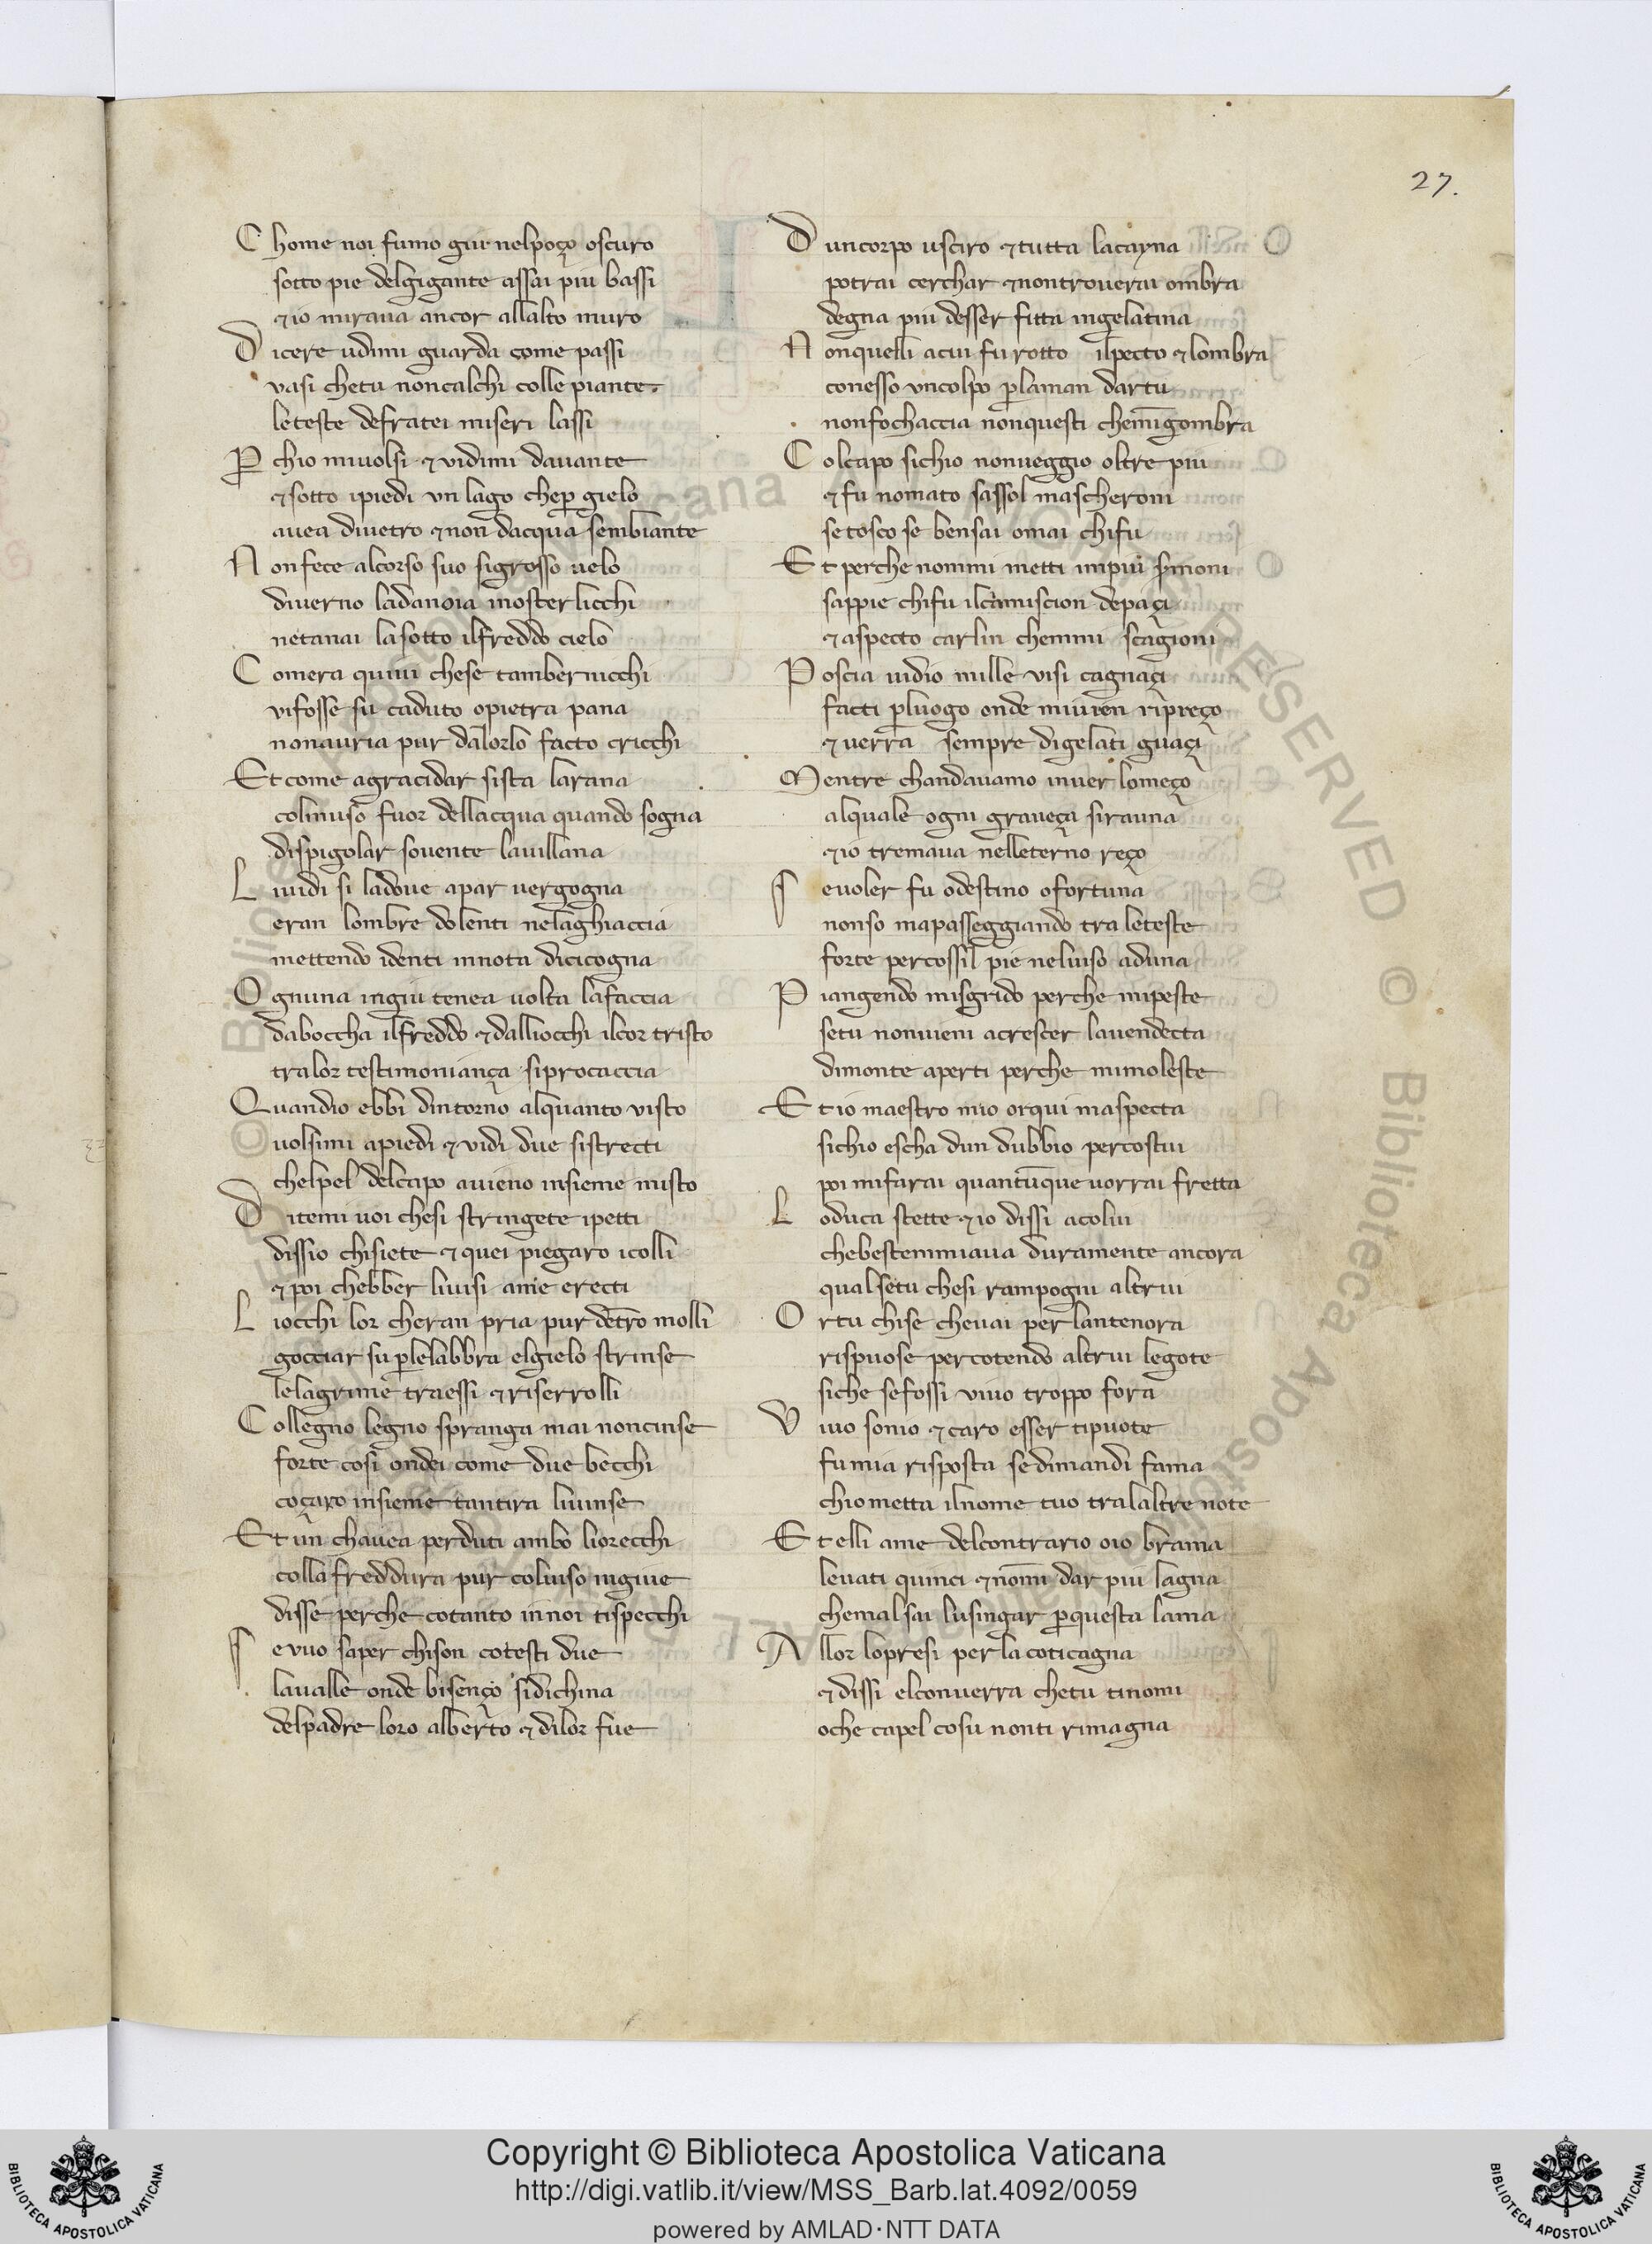 27.
Chome noi fumo giu nelpoço oscuro
sotto pie delgigante assai piu bassi
⁊io miraua ancor allalto muro
Dicere udimi guarda come passi
vasi chetu noncalchi colle piante
leteste defratei miseri lassi
P̱chio miuolsi ⁊ vidimi dauante
⁊sotto ipiedi vn lago chep̱ gielo
auea diuetro ⁊ non dacqua sembiante
Non fece alcorso suo sigrosso uelo
diuerno ladanoia inosterlicchi
netanai lasotto ilfreddo cielo
Comera quiui chese tambernicchi
vifosse su caduto opietra pana
nonauria pur dalorlo facto cricchi
Et come agracidar sista larana
colmuso fuor dellacqua quando sogna
dispigolar souente lauillana
Liuidi si ladoue apar uergogna
eran lombre dolenti nelaghiaccia
mettendo identi innota dicicogna
Ognuna ingiu tenea uolta lafaccia
daboccha ilfreddo ⁊dalliocchi ilcor tristo
tralor testimoniança siprocaccia
Quandio ebbi dintorno alquanto visto
uolsimi apiedi ⁊ vidi due sistrecti
chelpel delcapo auieno insieme misto
Ditemi uoi chesi stringete ipetti
dissio chisiete ⁊ quei piegaro icolli
⁊ poi chebber liuisi ame erecti
Liocchi lor cheran pria pur dētro molli
gocciar su p̱lelabbra elgielo strinse
lelagrime traessi ⁊ riserrolli
Collegno legno spranga mai noncinse
forte cosi ondei come due becchi
coçaro insieme tantira liuinse
Et un chauea perduti ambo liorecchi
colla freddura pur coluiso ingiue
disse perche cotanto innoi tispecchi
Se vuo saper chison cotesti due
laualle onde bisenço sidichina
delpadre loro alberto ⁊ dilor fue
Duncorpo usciro ⁊tutta lacayna
potrai cerchar ⁊nontrouerai ombra
degna piu desser fitta ingelatina
Nonquelli acui fu rotto ilpecto ⁊ lombra
conesso vncolpo p̱laman dartu
nonfochaccia nonquesti chemīgombra
Colcapo sichio nonueggio oltre piu
⁊ fu nomato sassol mascheroni
setosco se bensai omai chifu
Et perche nonmi metti inpiu s̱moni
sappie chifu ilcamiscion depaçi
⁊ aspecto carlin chemmi scagioni
Poscia uidio mille visi cagnaçi
facti p̱luogo onde miuien ripreço
⁊ uerra sempre digelati guaçi
Mentre chandauamo inuer lomeço
alquale ogni graueça sirauna
⁊io tremaua nelleterno reço
Seuoler fu odestino ofortuna
nonso mapasseggiando tra leteste
forte percossil pie neluiso aduna
Piangendo misgrido perche mipeste
setu nonuieni acrescer lauendecta
dimonte aperti perche mimoleste
Et io maestro mio orqui maspecta
sichio escha dun dubbio percostui
poi mifarai quantūque uorrai fretta
Loduca stette ⁊ io dissi acolui
chebestemmiaua duramente ancora
qual setu chesi rampogni altrui
Ortu chise cheuai per lantenora
rispuose percotendo altrui legote
siche sefossi viuo troppo fora
Viuo sonio ⁊ caro esser tipuote
fu mia risposta sedimandi fama
chiometta ilnome tuo tralaltre note
Et elli ame delcontrario oio brama
leuati quinci ⁊ nōmi dar piu lagna
chemal sai lusingar p̱questa lama
Allor lopresi per la coticagna
⁊ dissi elconuerra chetu tinomi
oche capel cosu nonti rimagna
Copyright © Biblioteca Apostolica Vaticana
http://digi.vatlib.it/view/MSS_Barb.lat.4092/0059
powered by AMLAD·NTT DATA
BIBLIOTECA APOSTOLICA VATICANA
BIBLIOTECA APOSTOLICA VATICANA